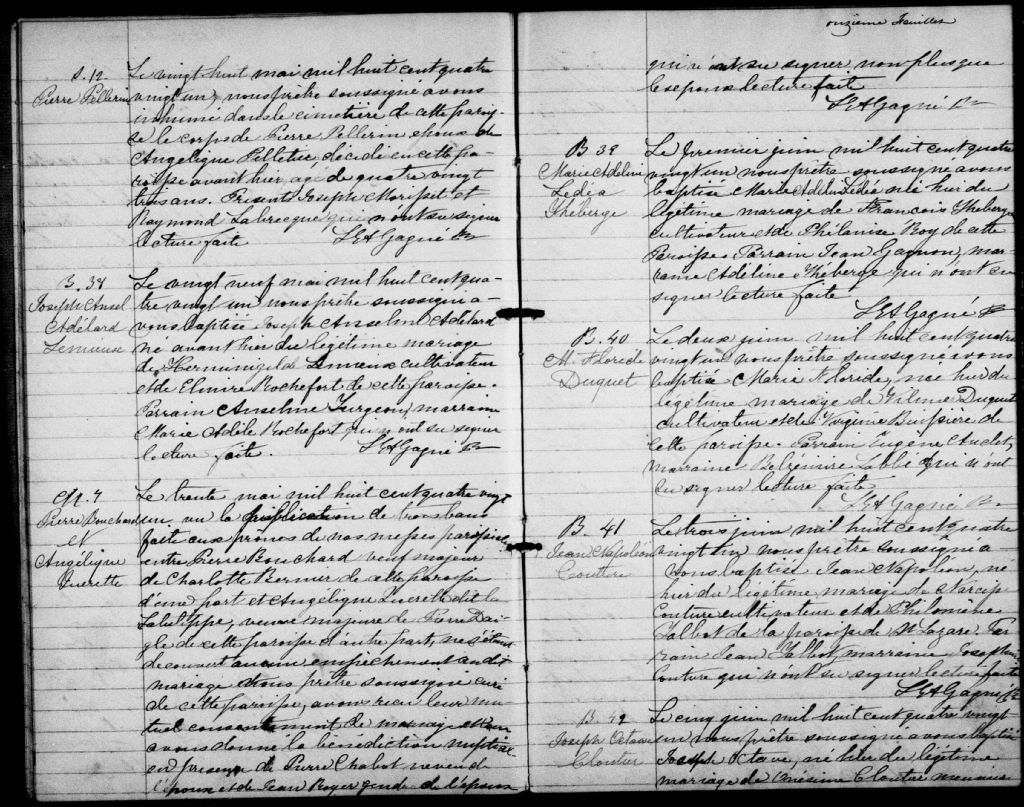 S. 12
Pierre Pellerin
Le vingt huit mai mil huit cent quatre
vingt un, nous prêtre soussigné avons
inhumé dans le cimetière de cette parois-
se le corps de Pierre Pellerin époux de
Angelique Pelletier, décédé en cette pa-
roisse avant hier, agé de quatre vingt
trois ans. Présents Joseph Morisset et
Raymond Labrecque qui n'ont su signer
lecture faite LEAGagné Ptre
B. 38
Joseph Ansel
Adélard
Lemieux
Le vingt neuf mai mil huit cent qua-
tre vingt un nous prêtre soussigné a-
vons baptisé Joseph Anselme Adélard
né avant hier du légetime mariage
de Herminigilde Lemieux cultivateur
et de Elmire Rochefort de cette paroisse.
Parrain Anselme Turgeon, marraine
Marie Adèle Rochefort qui n'ont su signer
lecture faite. LEAGagné Ptre
M. 7
Pierre Bouchard
et
Angélique
Guerette
Le trente mai mil huit cent quatre vingt
un, vu la publication de trois bans
faite aux prônes de nos messes paroissiales
entre Pierre Bouchard veuf majeur
de Charlotte Bernier de cette paroisse
d'une part et Angélique dit la
veuve majeure de Pierre Dai-
gle de cette paroisse d'autre part, ne s'étant
découvert aucun empêchement au dit
mariage nous prêtre soussigné curé
de cette paroisse, avons reçu leur mu-
tuel consentement de mariage et leur
avons donné la bénédiction nuptiale
en présence de Pierre Chabot, neveu de
l'époux et de Jean Royer gendre de l'épouse
onzième feuillet
qui n'ont su signer non plus que
les époux lecture faite
LEAGagné Ptre
B 39
Marie Adeline
Lédia
Theberge
Le premier juin mil huit cent quatre
vingt un nous prêtre soussigné avons
baptisé Marie Adeline Lédia née hier du
légitime mariage de François Theberge
cultivateur et de Philanise Roy de cette
Paroisse. Parrain Jean Gagnon, mar-
raine Adéline Theberge qui n'ont su
signer lecture faite
LEAGagné Ptre
B. 40
M. Floride
Duquet
Le deux juin mil huit cent quatre
vingt un nous prêtre soussigné avons
baptisée Marie Floride, née hier du
légitime mariage de Duquet
cultivateur et de Virginie Buissière de
cette paroisse. Parrain Eugène Audet,
marraine Belzémire Labbé qui n'ont
su signer lecture faite
LEAGagné Ptre
B. 41
Jean Napoleon
Couture
Le trois juin mil huit cent quatre
vingt un nous prêtre soussigné a-
vons baptisé Jean Napoléon, né
hier du légitime mariage de Narcisse
Couture cultivateur et de Philomène
Talbot de la paroisse de St Lazare. Par-
rain Jean Talbot, marraine Josephine
Couture qui n'ont su signer lecture faite
LEAGagné Ptre
B. 42
Joseph Octave
Cloutier
Le cinq juin mil huit cent quatre vingt
un nous prêtre soussigné avons baptisé
Joseph Octave, né hier du légitime
mariage de Onésime Cloutier menuisier